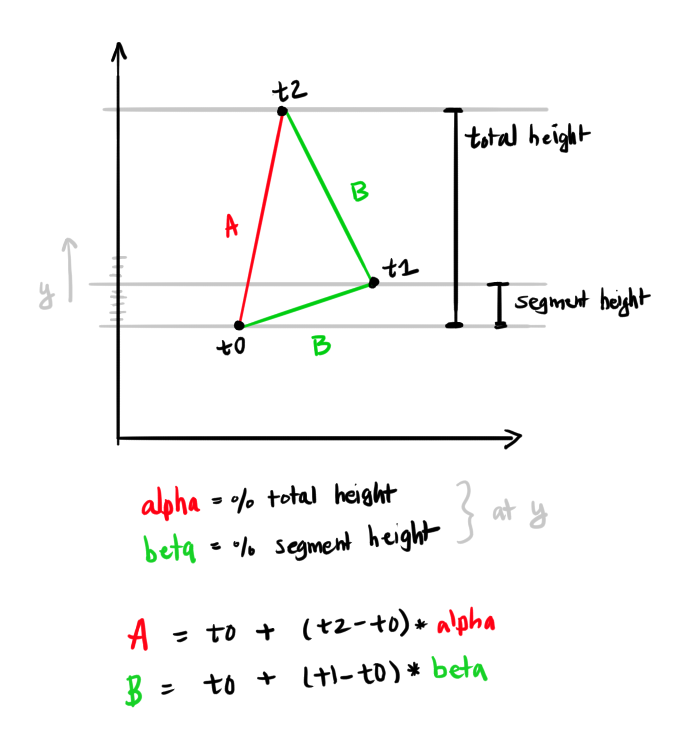 t2
total height
B
A
t1
y
segment height
t0
B
alpha = % total height
beta = % segment height
} at y
A = t0 + (t2-t0)* alpha
B = t0 + (t1-t0)* beta